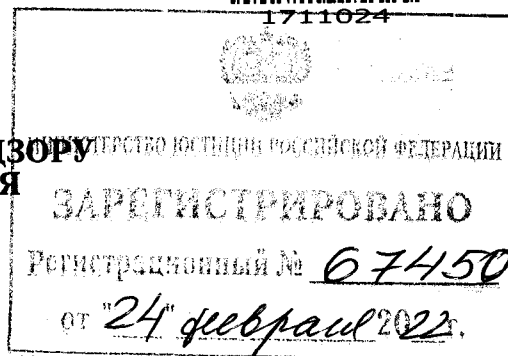 1711024
ДЗОРУ
Я
МИНИСТЕРСТВО ЮСТИЦИИ РОССИЙСКОЙ ФЕДЕРАЦИИ
ЗАРЕГИСТРИРОВАНО
Регистрационный № 67450
от "24" февраля 2022 г.